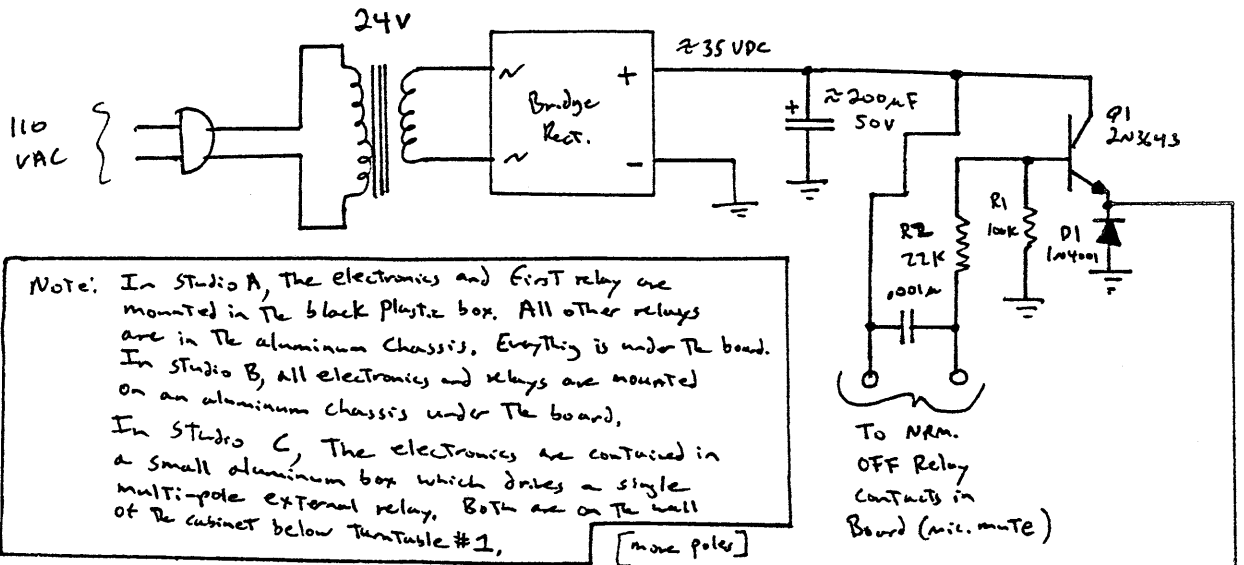 24V
110
VAC
~
~
+
-
Bridge
Rect.
≈35 VDC
+
≈200µF
50V
Q1
2N3643
R1
100K
R2
22K
D1
1N4001
.001µ
To NRM.
OFF Relay
Contacts in
Board (mic. mute)
Note: In Studio A, The electronics and first relay are
mounted in The black Plastic box. All other relays
are in The aluminum Chassis. Everything is under The board.
In Studio B, all electronics and relays are mounted
on an aluminum chassis under The board.
In Studio C, The electronics are contained in
a small aluminum box which drives a single
multi-pole external relay. Both are on The wall
of The cabinet below TurnTable #1.
[more poles]